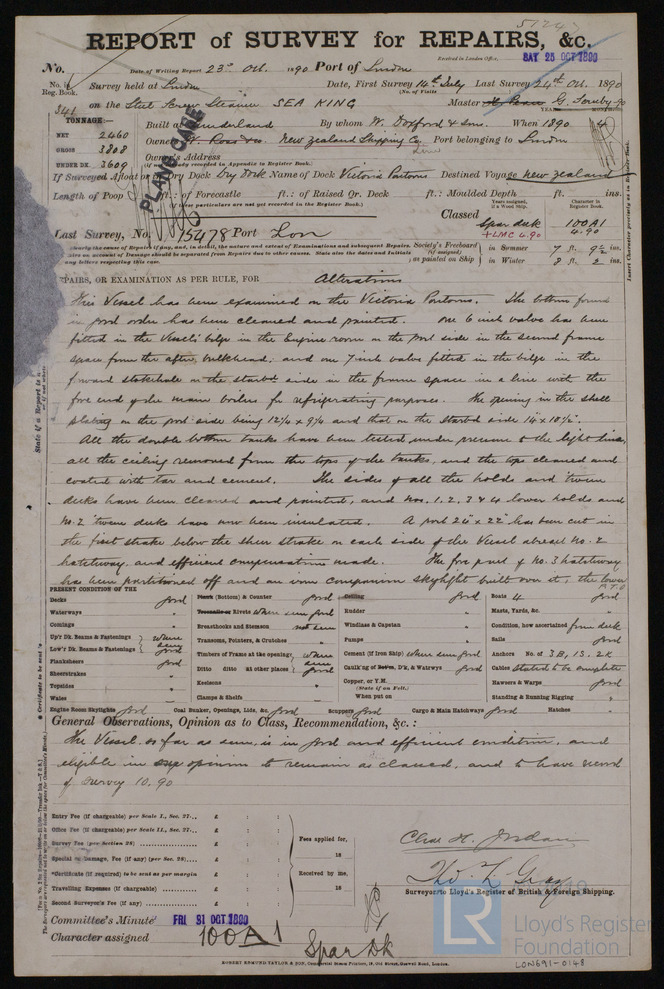 51247
REPORT of SURVEY for REPAIRS, &c.
Received in London Office, SAT 25 OCT 1890
No. Date of Writing Report 23rd Oct. 1890 Port of London
No. in Reg. Book. Survey held at London Date, First Survey 14th July Last Survey 24th Oct. 1890
(No. of Visits
341 on the Steel Screw Steamer SEA KING Master G. Fornby
TONNAGE:—
NET 2460
GROSS 3808
UNDER DK. 3609
Built at Sunderland By whom W. Doxford & Sons When 1890 4
Owners W. Ross & Co. New Zealand Shipping Co. Port belonging to London
Owner's Address
(if not already recorded in Appendix to Register Book.)
PLANS CASE
If Surveyed Afloat or in Dry Dock Dry Dock Name of Dock Victoria Pontoons Destined Voyage New Zealand
Length of Poop ft.: of Forecastle ft.: of Raised Qr. Deck ft.: Moulded Depth ft. ins.
(If these particulars are not yet recorded in the Register Book.)
Last Survey, No. 75478 Port Lon
Classed Years assigned, if a Wood Ship. Character in Register Book.
Spar deck 100A1
+LMC 4.90 4.90
Society's Freeboard (if assigned) as painted on Ship
in Summer 7 ft. 9½ ins.
in Winter 8 ft. 2 ins.
REPAIRS, OR EXAMINATION AS PER RULE, FOR Alterations
This Vessel has been examined on the Victoria Pontoons. The bottom found
in good order has been cleaned and painted. One 6 inch valve has been
fitted in the Vessel's bilge in the Engine room on the port side in the second frame
space from the after bulkhead; and one 7 inch valve fitted in the bilge in the
forward stokehole on the starbd side in the frame space in a line with the
fore end of the main boilers for refrigerating purposes. The opening in the shell
plating on the port side being 12¼ x 9¼ and that on the starbd side 14 x 10½".
All the double bottom tanks have been tested under pressure to the light line,
all the ceiling removed from the tops of the tanks, and the tops cleaned and
coated with tar and cement. The sides of all the holds and 'tween
decks have been cleaned and painted, and Nos. 1. 2. 3 & 4 lower holds and
No. 2 'tween decks have now been insulated. A port 26" x 22" has been cut in
the first strake below the sheer strake on each side of the Vessel abreast No. 2
hatchway, and efficient compensation made. The fore part of No. 3 hatchway
has been partitioned off and an iron companion skylight built over it; the lower
P.T.O
PRESENT CONDITION OF THE
Decks good
Waterways "
Comings "
Up'r Dk. Beams & Fastenings } where seen
Low'r Dk. Beams & Fastenings } good
Planksheers good
Sheerstrakes "
Topsides "
Wales "
Engine Room Skylights good
Plank (Bottom) & Counter good
Treenails or Rivets where seen good
Breasthooks and Stemson not seen
Transoms, Pointers, & Crutches "
Timbers of Frame at the openings } where seen
Ditto ditto at other places } good
Keelsons "
Clamps & Shelfs "
Coal Bunker, Openings, Lids, &c. good
Ceiling good
Rudder "
Windlass & Capstan "
Pumps "
Cement (if Iron Ship) where seen good
Caulk'ng of Bottom, D'k, & Watrways good
Copper, or Y.M.
(State if on Felt.)
When put on
Scuppers good
Cargo & Main Hatchways good
Boats 4 good
Masts, Yards, &c. "
Condition, how ascertained from deck
Sails good
Anchors No. of 3B, 1S, 2K
Cables stated to be complete
Hawsers & Warps good
Standing & Running Rigging "
Hatches "
General Observations, Opinion as to Class, Recommendation, &c. :
The Vessel, so far as seen, is in good and efficient condition, and
eligible in our opinion to remain as classed, and to have record
of survey 10.90
Entry Fee (if chargeable) per Scale I., Sec. 27... £ : :
Office Fee (if chargeable) per Scale II., Sec. 27... £ : :
Survey Fee (per Section 28) £ : :
Special or Damage, Fee (if any) (per Sec. 28) £ : :
*Certificate (if required) to be sent as per margin £ : :
Travelling Expenses (if chargeable) £ : :
Second Surveyor's Fee (if any) £ : :
Fees applied for,
18
Received by me,
18
Chas H. Jordan
Thos. L. Gray
Surveyors to Lloyd's Register of British & Foreign Shipping.
Committee's Minute FRI 31 OCT 1890
Character assigned 100A1
Spar Dk
LR Lloyd's Register
Foundation
LON691-0148